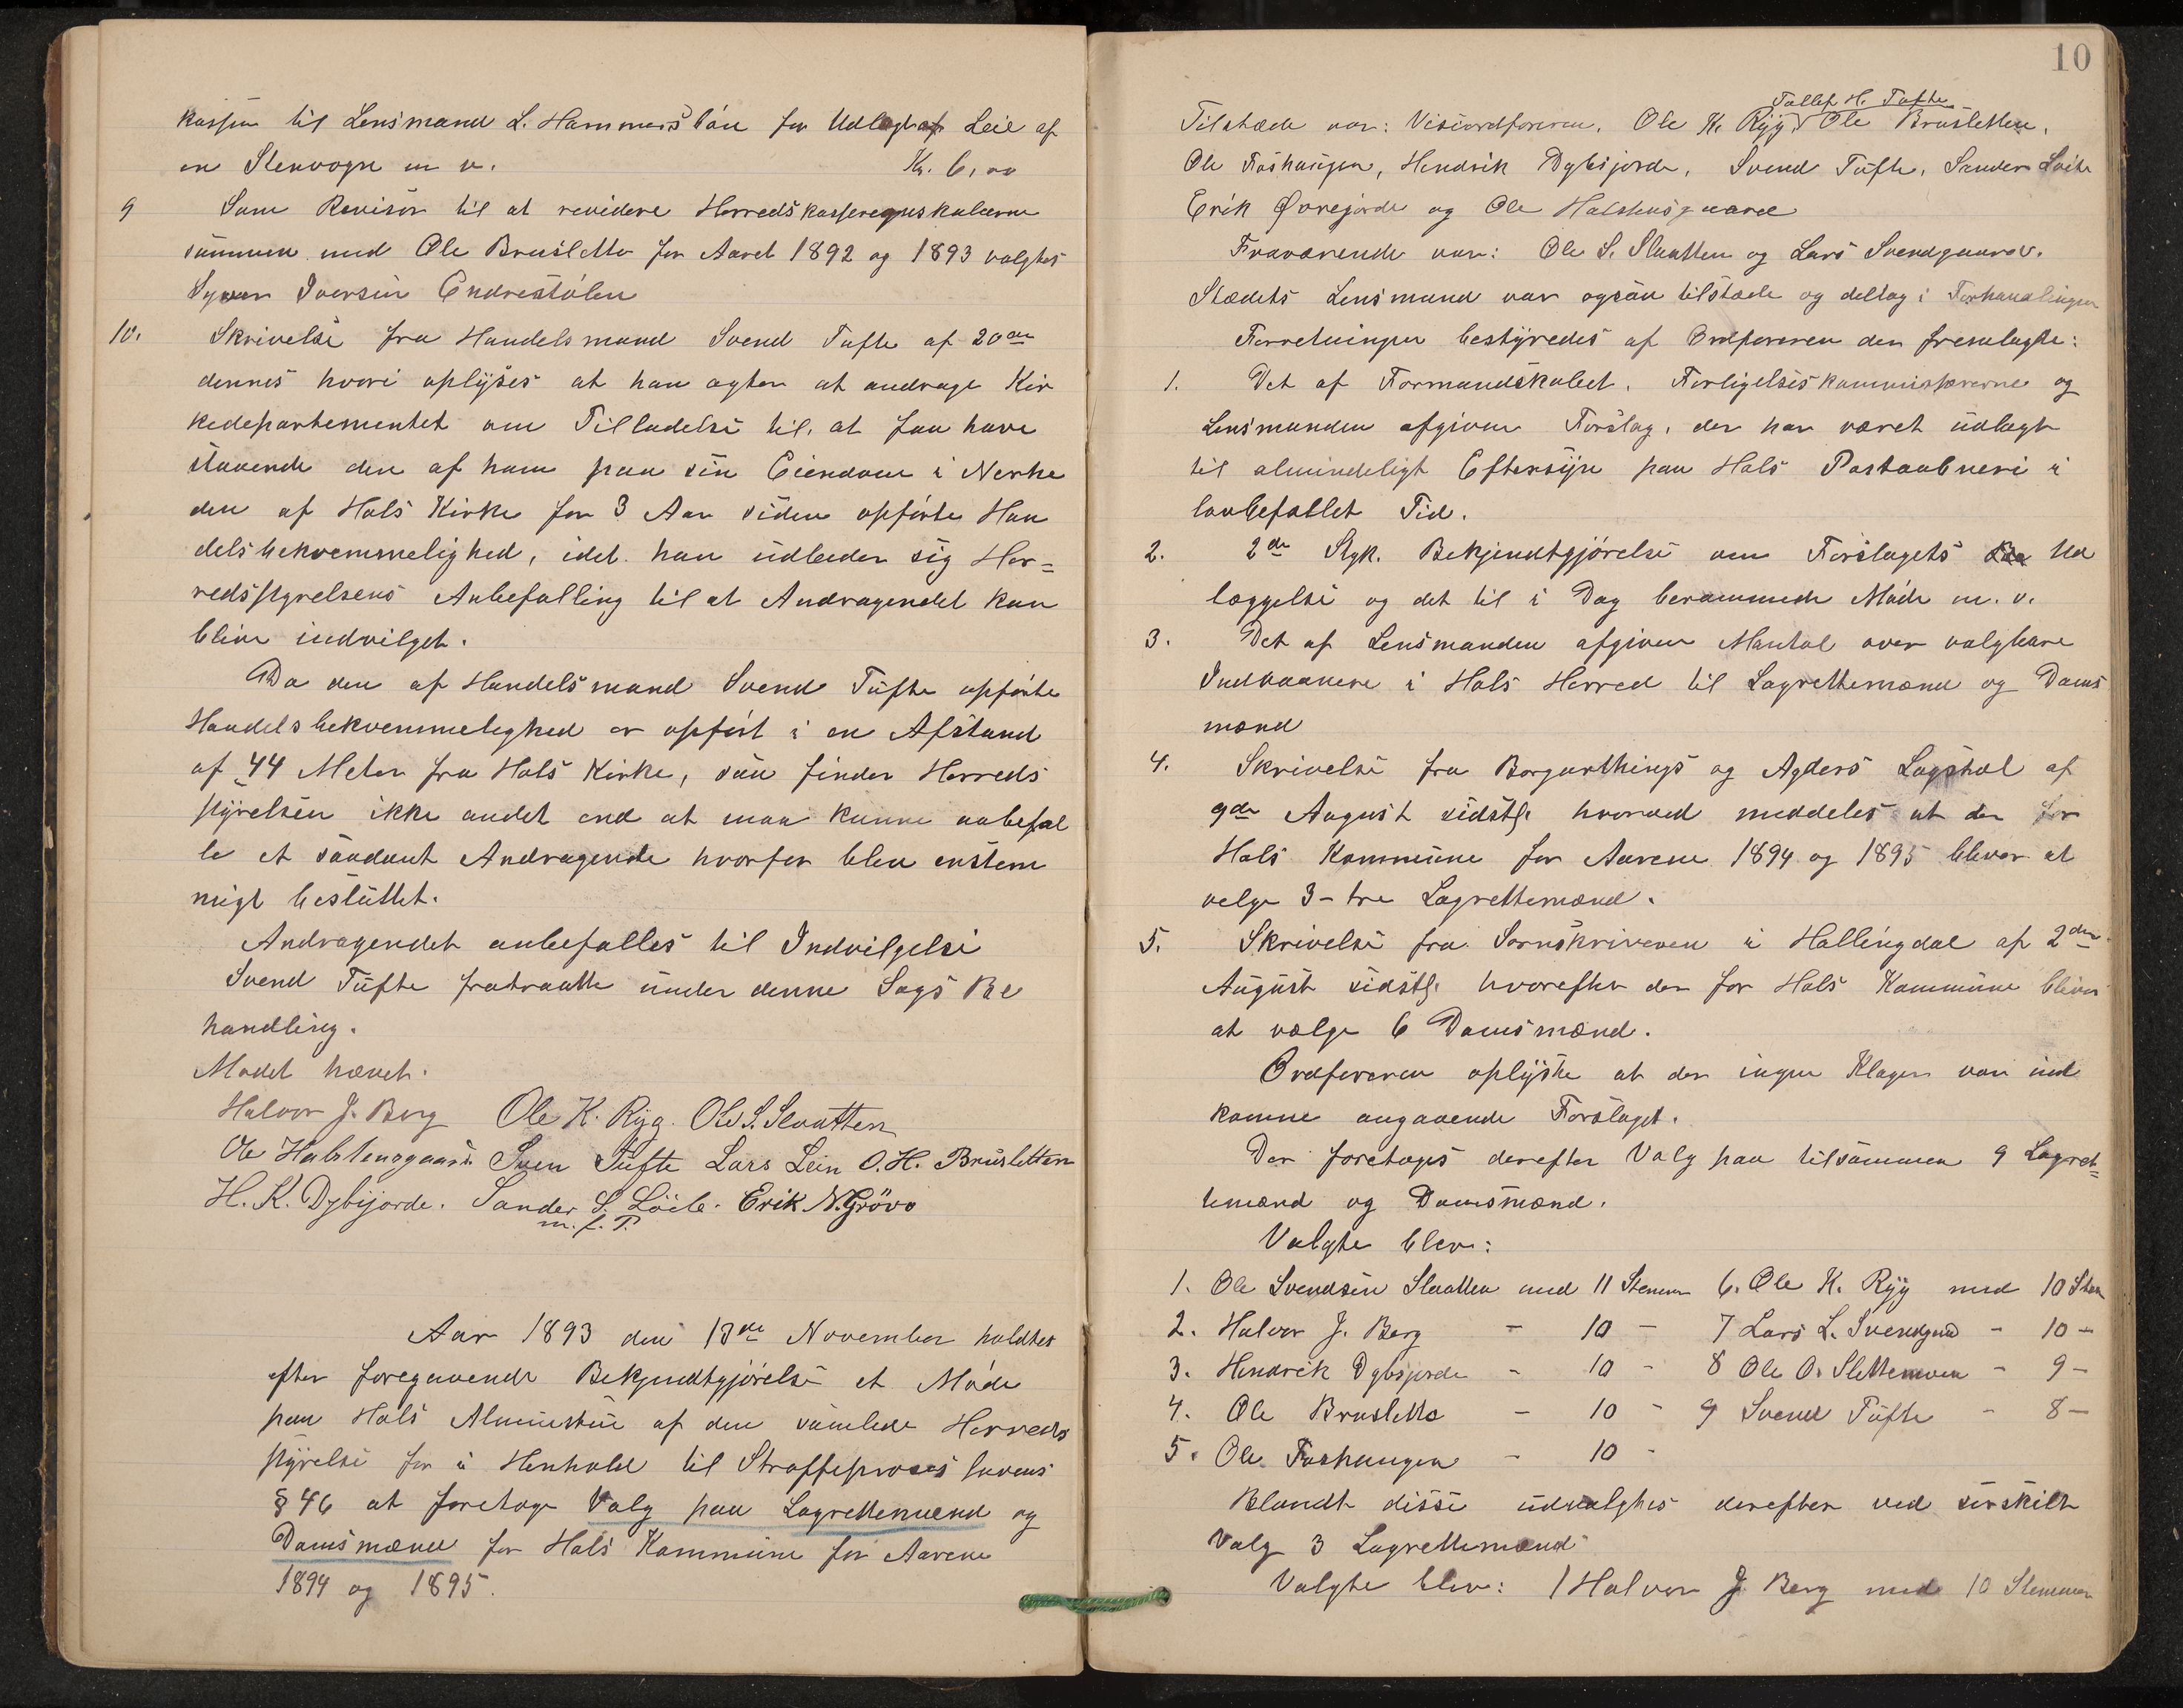 kassen til Lensmand L. Hammersbøen for Udlæg af Leie af
en Stenvogn m v. Kr. 6,00
9 Som Revisor til at revidere Herredskasseregnskaberne
sammen med Ole Brusletto for Aaret 1892 og 1893 valgtes
Syver Iversen Endrestølen
10. Skrivelse fra Handelsmand Svend Tufte af 20de
dennes hvori oplyses at han agter at andrage Kir
kedepartementet om Tilladelse til at faa have
staaende den af ham paa sin Eiendom i Nerhe
den af Hols Kirke for 3 Aar siden opførte Han
delsbekvemmelighed, idet han udbeder sig Her=
redsstyrelsens Anbefalling til at Andragendet kan
blive indvilget.
Da den af Handelsmand Svend Tufte opførte
Handelsbekvemmelighed er opført i en Afstand
af 44 Meter fra Hols Kirke, saa finder Herreds
styrelsen ikke andet end at man kunne anbefal
le et saadant Andragende hvorfor blev enstem
migt besluttet.
Andragendet anbefalles til Indvilgelse
Svend Tufte fratraatte under denne Sags Be
handling.
Mødet hævet.
Halvor J. Berg Ole K. Ryg. Ole S. Slaatten
Ole Halstensgaard Sven Tufte Lars Lein O. H. Brusletten
H. K. Dybsjorde. Sander S. Løile. Erik N. Grøvo
m. f. P.
Aar 1893 den 13de November holdtes
efter foregaaende Bekjendtgjørelse et Møde
paa Hols Almuestue af den samlede Herreds
styrelse for i Henhold til Straffeproseslovens
§ 46 at foretage Valg paa Lagrettemænd og
Domsmænd for Hols Kommune for Aarene
1894 og 1895.
10
Tollef H. Tufte
Tilstæde var: Viseordføreren, Ole K. Ryg, Ole Brusletten,
Ole Foshaugen, Hendrik Dybsjorde, Svend Tufte, Sander Løile
Erik Øvrejorde og Ole Halstensgaard
Fraværende var: Ole S. Slaatten og Lars Svendgaard.
Stædets Lensmand var ogsaa tilstæde og deltog i Forhandlingen
Forretningen bestyredes af Ordføreren der fremlagte:
1. Det af Formandskabet, Forligelseskommisærerne og
Lensmanden afgivne Forslag, der har været udlagt
til almindeligt Eftersyn paa Hols Postaabneri i
lovbefallet Tid.
2. 2de Styk. Bekjendtgjørelse om Forslagets Ud
læggelse og det til i Dag berammede Møde m. v.
3. Det af Lensmanden afgivne Mantal over valgbare
Indvaanere i Hols Herred til Lagrettemænd og Doms
mænd
4. Skrivelse fra Borgarthings og Agders Lagstol af
9de August sidstl. hvorved meddeles at der for
Hols Kommune for Aarene 1894 og 1895 bliver at
velge 3 - tre Lagrettemænd.
5. Skrivelse fra Sornskriveren i Hallingdal af 2den
August sidstl. hvorefter der for Hols Kommune bliver
at vælge 6 Domsmænd.
Ordføreren oplyste at der ingen Klager var ind
komne angaaende Forslaget.
Der foretoges derefter Valg paa tilsammen 9 Lagret=
temænd og Domsmænd.
Valgte blev:
1. Ole Svendsen Slaatten med 11 Stemmer 6. Ole K. Ryg med 10 Stem
2. Halvor J. Berg - 10 - 7 Lars L. Svendgrd - 10 -
3. Hendrik Dybsjorde - 10 - 8 Ole O. Slettemoen - 9 -
4. Ole Brusletto - 10 - 9 Svend Tufte - 8 -
5. Ole Foshaugen - 10 -
Blandt disse udvalgtes derefter ved særskilt
Valg 3 Lagrettemænd
Valgte blev: 1 Halvor J. Berg med 10 Stemmer